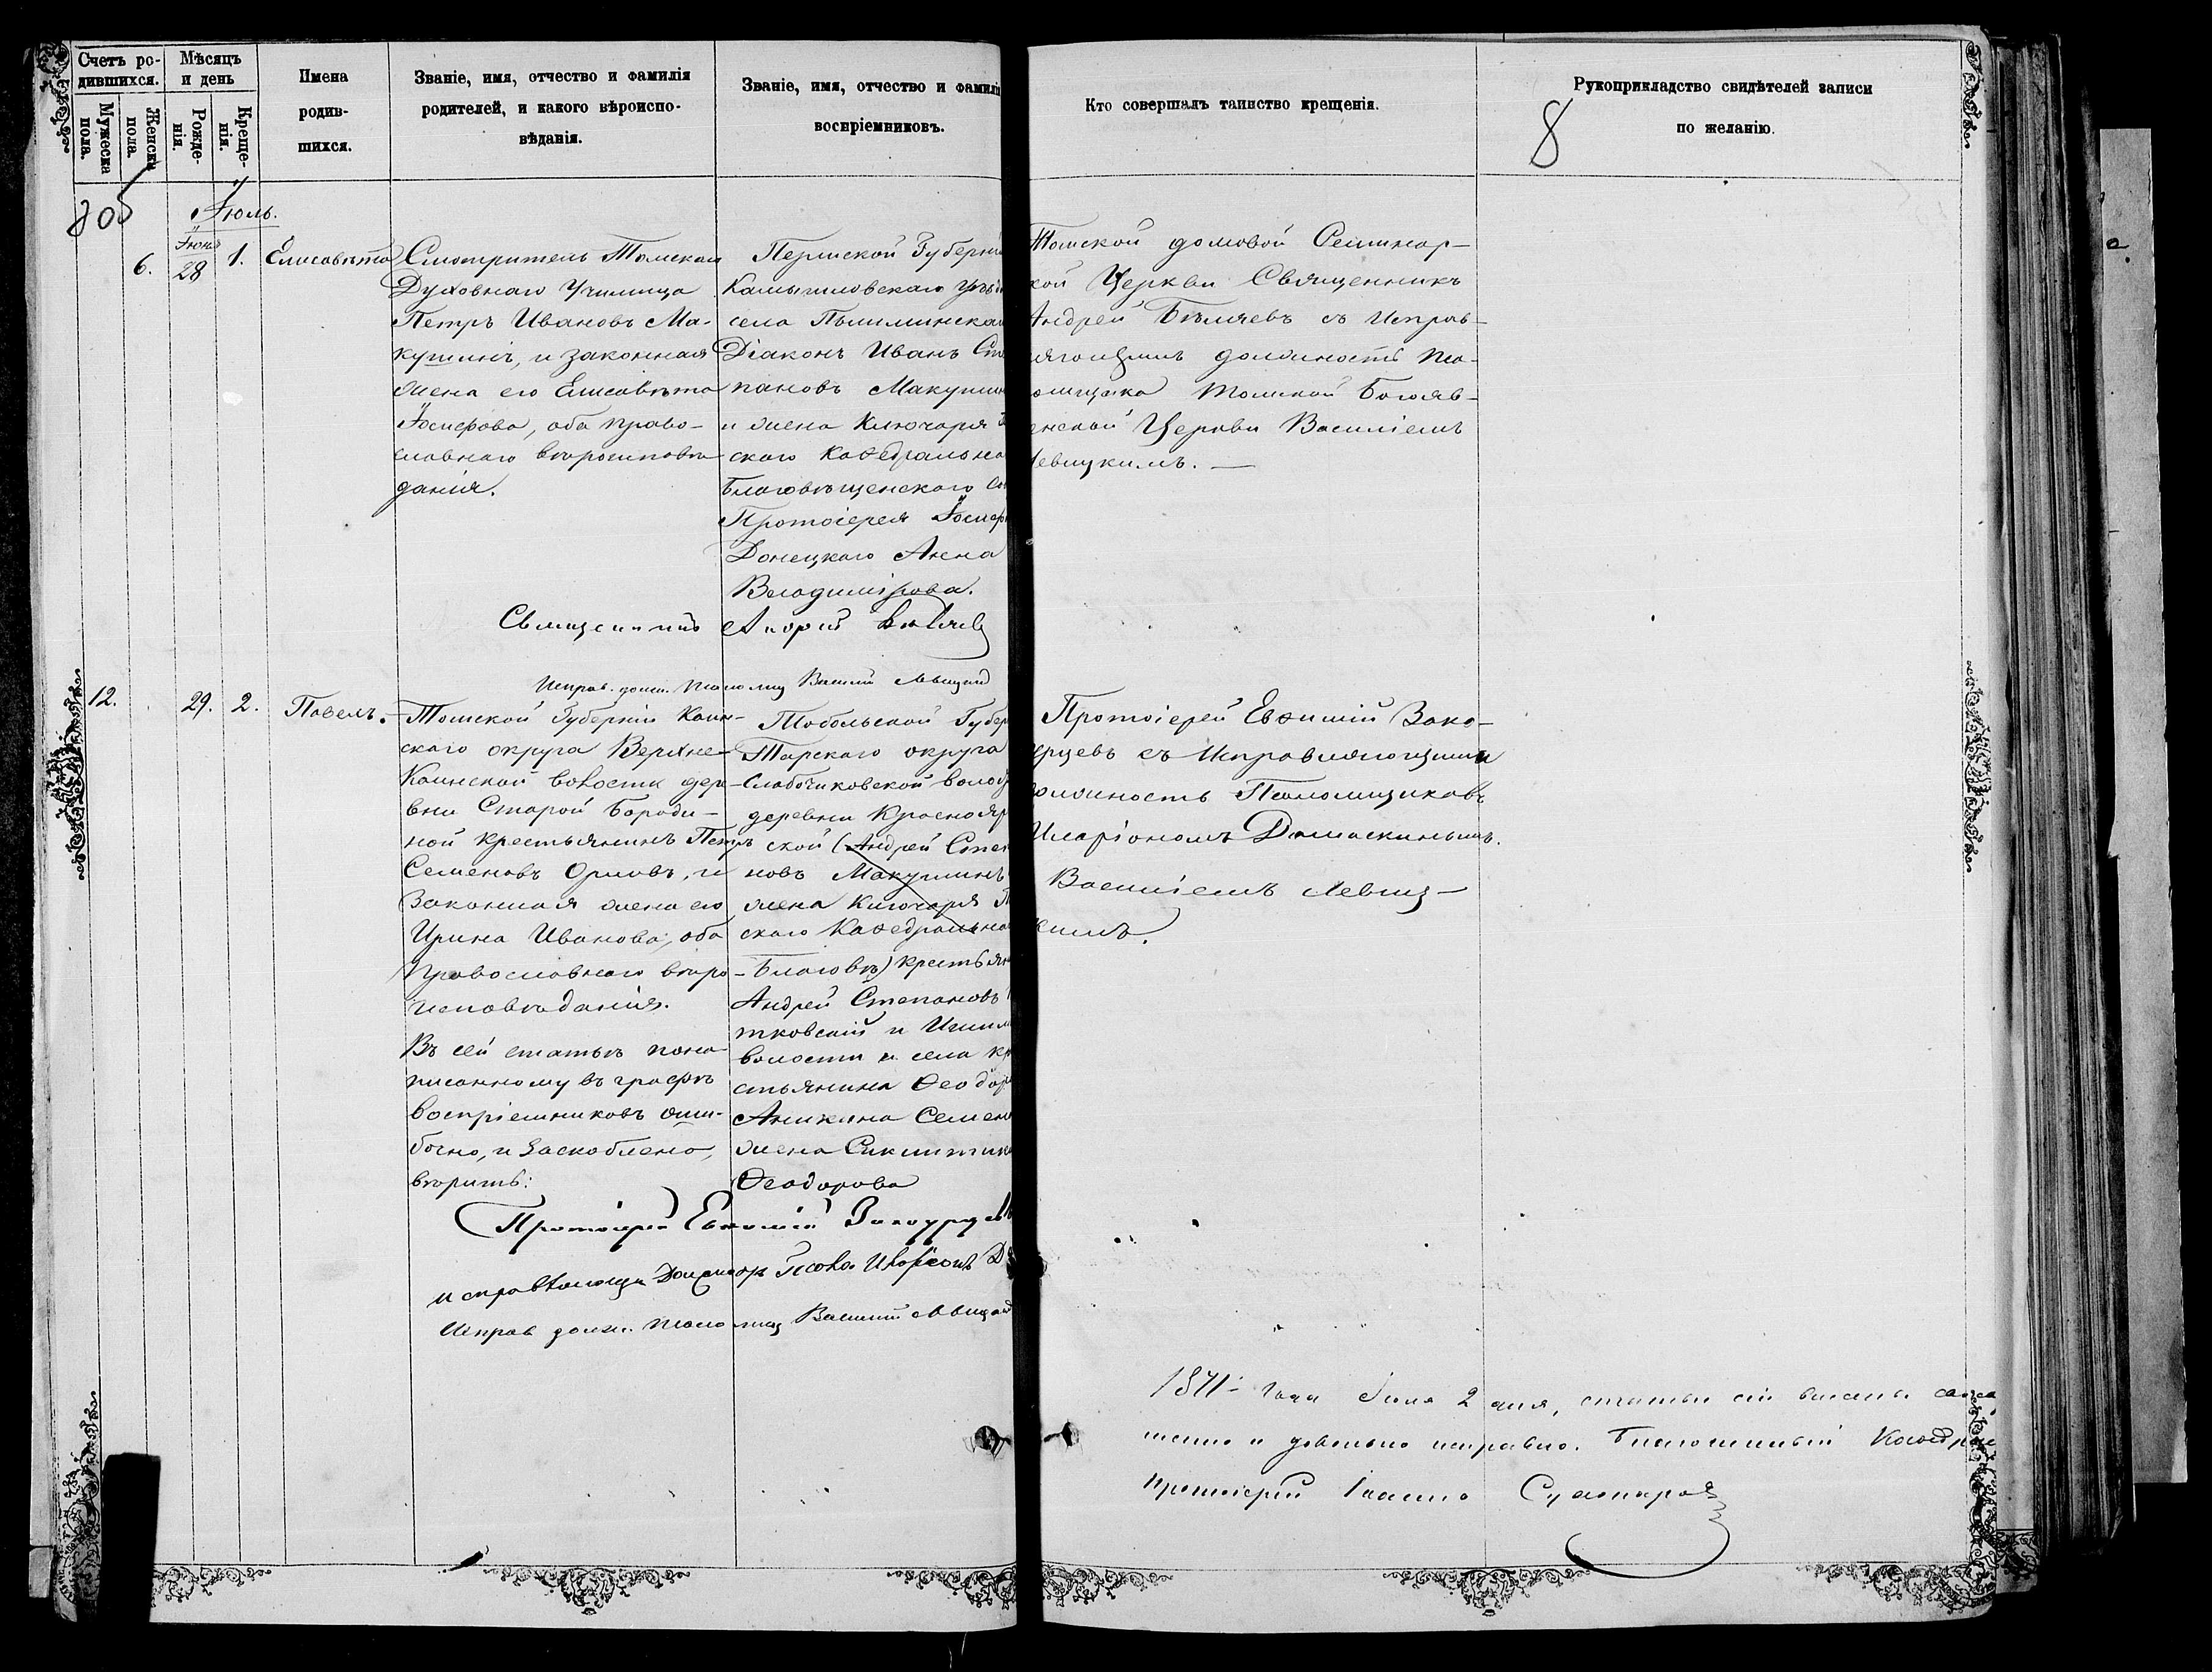 Счетъ ро-
дившихся.
Мѣсяцъ
и день
Мужеска
пола.
Женска
пола.
Рожде-
нія.
Креще-
нія.
Имена
родив-
шихся.
Званіе, имя, отчество и фамилія
родителей, и какого вѣроиспо-
вѣданія.
Званіе, имя, отчество и фамилі
воспріемниковъ.
Кто совершалъ таинство крещенія.
Рукоприкладство свидѣтелей записи
по желанію.
8
205
Іюль.
Іюня
6.
28
1.
Елисавета
Смотритель Томскаго
Духовнаго Училища
Петръ Ивановъ Ма-
кушинъ, и законная
жена его Елисавета
Іосифова, оба право-
славнаго вѣроисповѣ
данія.
Пермской Губерніи
Камышловскаго уѣз
села Пышминска
Діаконъ Иванъ Сте
пановъ Макушин
и жена Ключаря
скаго Каѳедрально
Благовѣщенскаго Со
Протоіерея Іосиф
Донецкаго Анна
Владимірова.
Томской домовой Семинар-
кой Церкви Священникъ
Андрей Бѣляевъ съ Исправ-
ляющимъ должность Пса-
омщика Томской Богояв-
енской Церкви Василіемъ
Левицкимъ. —
Священникъ Андрей Бѣляевъ
Исправ. долж. Псаломщ Василій Левицкій
12.
29.
2.
Павелъ.
Томской Губерніи Каин-
скаго округа Верхне-
Каинской волости дер-
вни Старой Бороди-
ной крестьянинъ Петръ
Семеновъ Орловъ, и
Законная жена его
Ирина Иванова, оба
Православнаго вѣро
исповѣданія.
Въ сей статьѣ пона-
писанному въ графѣ
воспріемниковъ оши-
бочно, и заскоблено,
вѣрить:
Тобольской Губер
Тарскаго округа
Слободчиковской волост
деревни Краснояр
ской (Андрей Степ
новъ Макушинъ
жена Ключаря
скаго Каѳедрально
Благовѣ) крестьян
Андрей Степановъ
тковскій и
волости и села кр
стьянина Ѳеодор
Аникина Семен
жена
Ѳеодорова
Протоіерей Евѳимій Зако-
урцевъ съ Исправляющими
должность Псаломщиковъ
Иларіономъ Дамаскинымъ.
Василіемъ Левиц-
кимъ.
Протоіерей Евѳимій Закоурцевъ
исправляющій Должность Псалом Иларіонъ Д
Исправ долж. Псаломщ Василій Левицкій
1871 года Іюля 2 дня, статьи сіи писаны
шенно и довольно исправно. Благочинный Каѳедрал
Протоіерей Іоаннъ